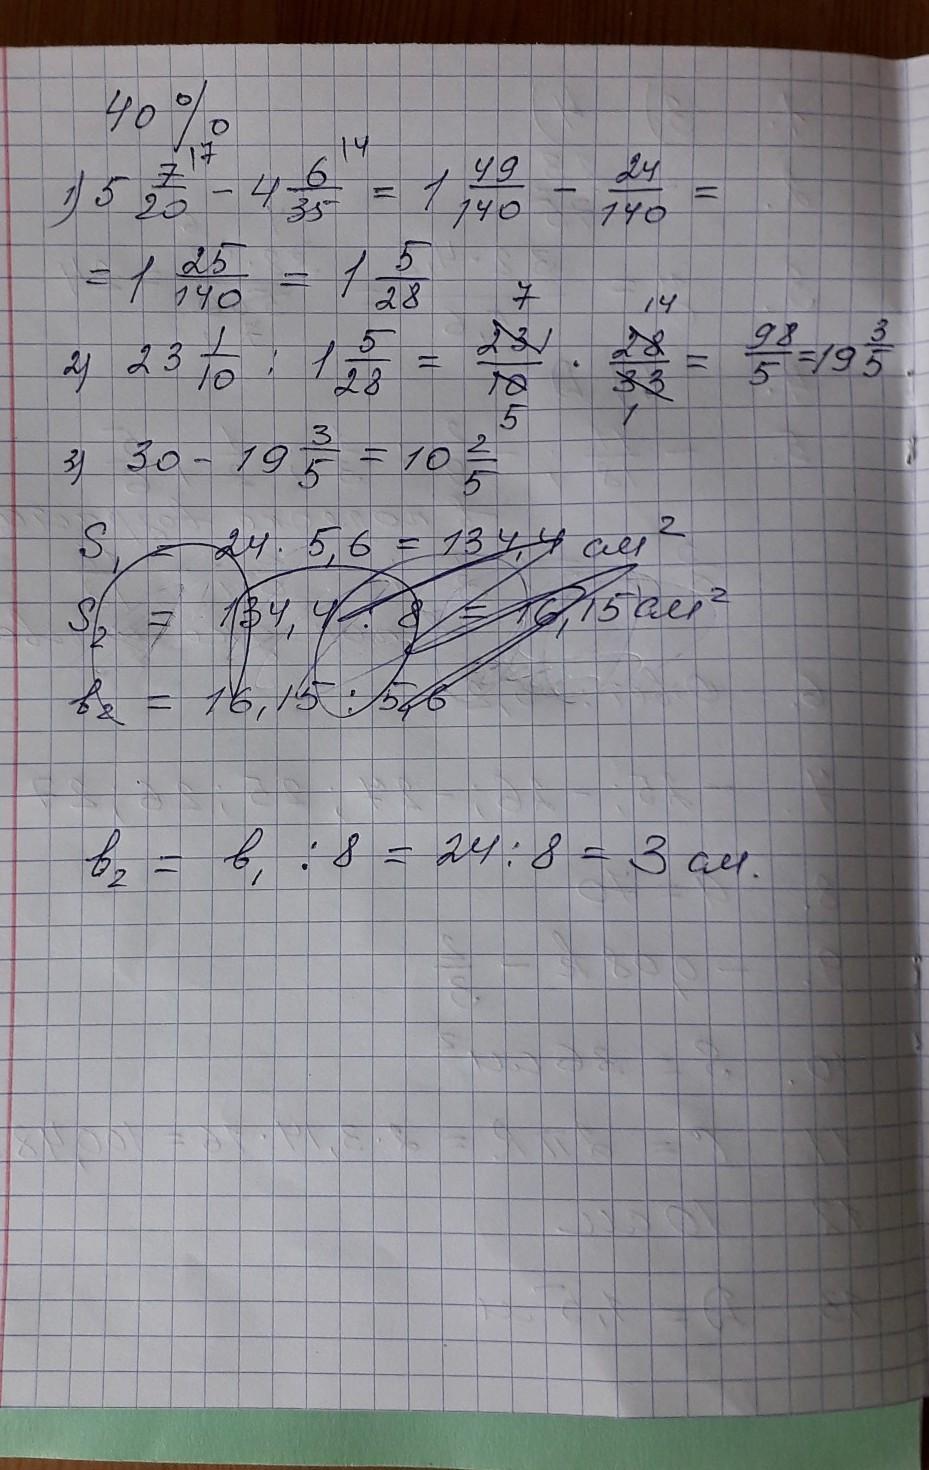 40 %
1) 5 7/20 |17 - 4 6/35 |14 = 1 49/140 - 24/140 =
= 1 25/140 = 1 5/28
7 14
2) 23 1/10 : 1 5/28 = 231/10 · 28/33 = 98/5 = 19 3/5
5 1
3) 30 - 19 3/5 = 10 2/5
S₁ = 24 · 5,6 = 134,4 см²
S₂ = 134,4 : 8 = 16,15 см²
b₂ = 16,15 : 5,6
b₂ = b₁ : 8 = 24 : 8 = 3 см.